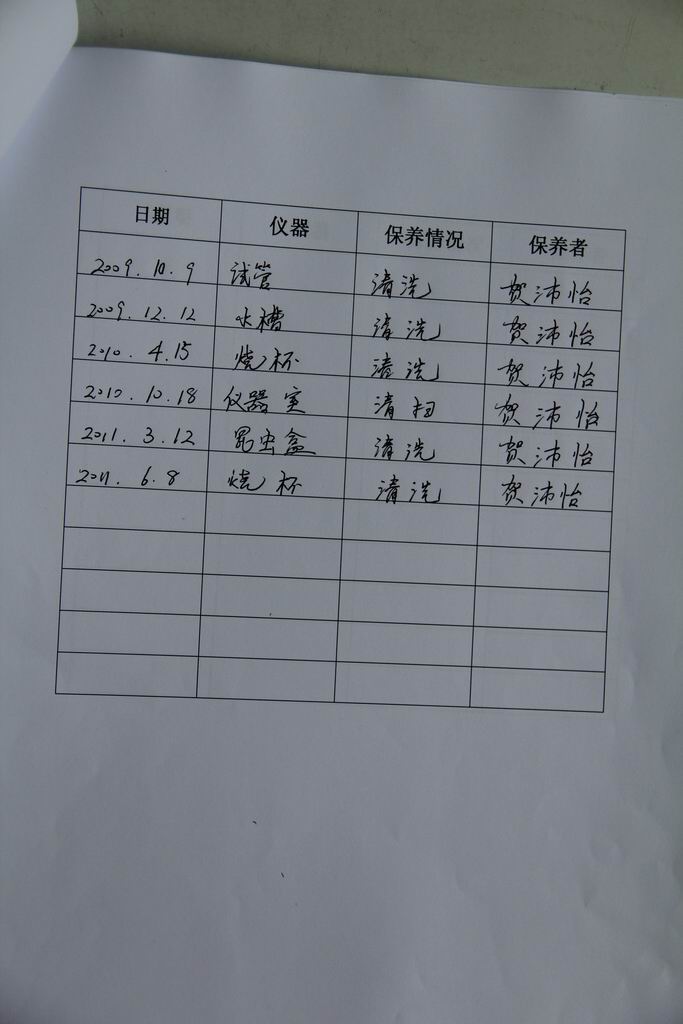 日期 仪器 保养情况 保养者
2009.10.9 试管 清洗 贺沛怡
2009.12.12 水槽 清洗 贺沛怡
2010.4.15 烧杯 清洗 贺沛怡
2010.10.18 仪器室 清扫 贺沛怡
2011.3.12 昆虫盒 清洗 贺沛怡
2011.6.8 烧杯 清洗 贺沛怡